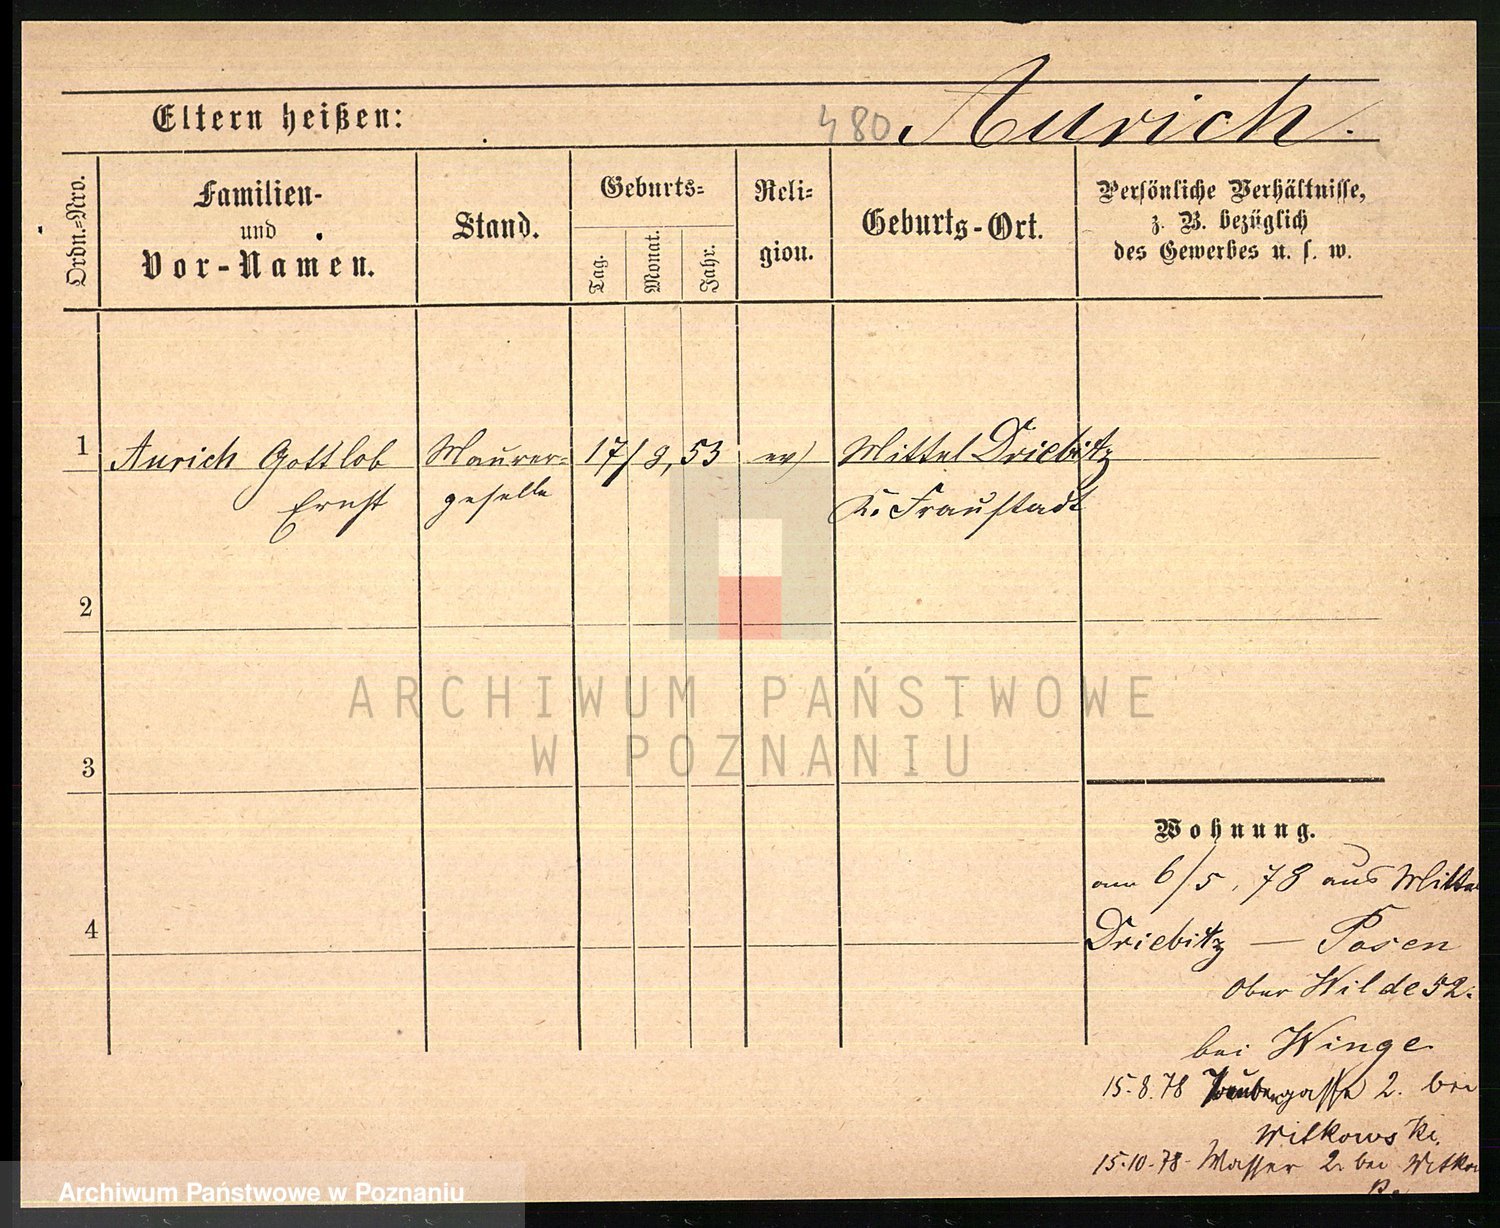 Eltern heißen:
480 Aurich.
Ordn.=Nro.
Familien-
und
Vor-Namen.
Stand.
Geburts=
Tag.
Monat.
Jahr.
Reli=
gion.
Geburts-Ort.
Persönliche Verhältnisse,
z. B. bezüglich
des Gewerbes u. s. w.
1 Aurich Gottlob Maurer= 17/ 9, 53 ev) Mittel Driebitz
Ernst geselle K. Fraustadt
2
3
4
ARCHIWUM PAŃSTWOWE
W POZNANIU
Wohnung.
am 6/5, 78 aus Mittel
Driebitz — Posen
Ober Wilde 52.
bei Winge
15.8.78 2. bei
Witkowski.
15.10.78 Wasser 2 bei Witkow
Archiwum Państwowe w Poznaniu